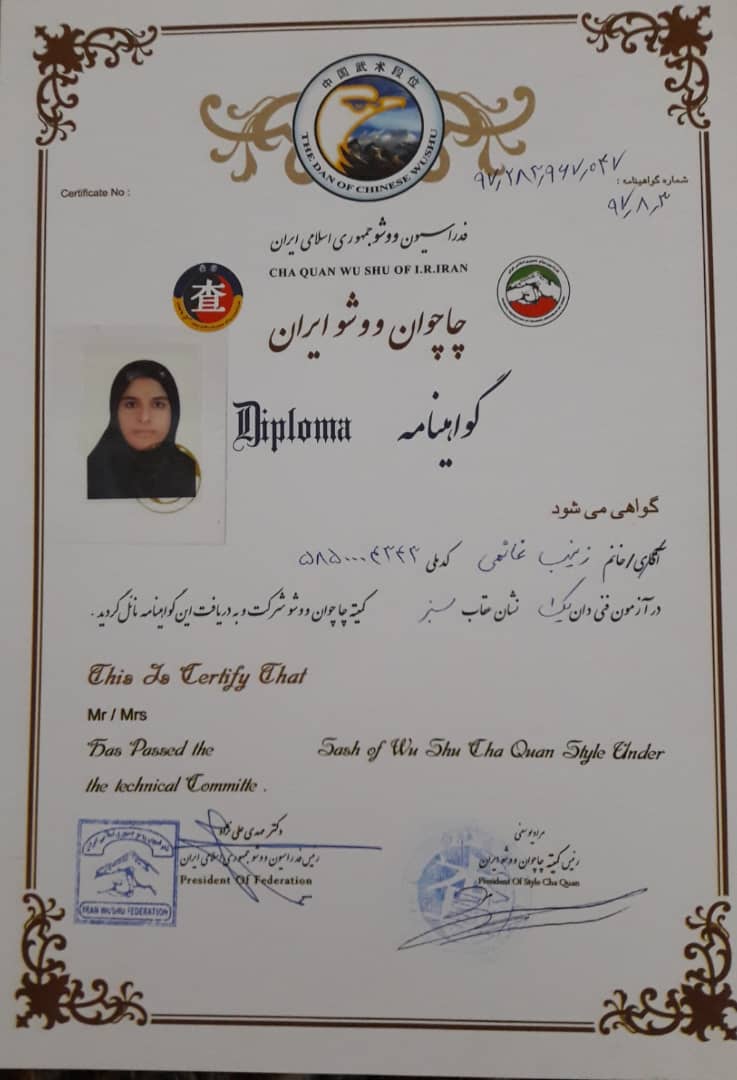 中国武术段位
THE DAN OF CHINESE WUSHU
شماره گواهینامه : ۹۷٫۲۸۲٫۹۶۷٫۰۴۷
Certificate No :
۹۷٫۸٫۳
فدراسیون ووشو جمهوری اسلامی ایران
CHA QUAN WU SHU OF I.R.IRAN
查
چاچوان ووشو ایران
Diploma گواهینامه
گواهی می شود
آقای/خانم زینب کد ملی ۵۸۵۰۰۰۴۳۴۳
در آزمون فنی دان یک نشان عقاب سبز کمیته چاچوان ووشو شرکت و به دریافت این گواهینامه نائل گردید .
This Is Certify That
Mr / Mrs
Has Passed the Sash of Wu Shu Cha Quan Style Under
the technical Committe .
دکتر مهدی علی نژاد
رئیس فدراسیون ووشو جمهوری اسلامی ایران
President Of Federation
IRAN WUSHU FEDERATION
مراد یوسفی
رئیس کمیته چاچوان ووشو ایران
President Of Style Cha Quan